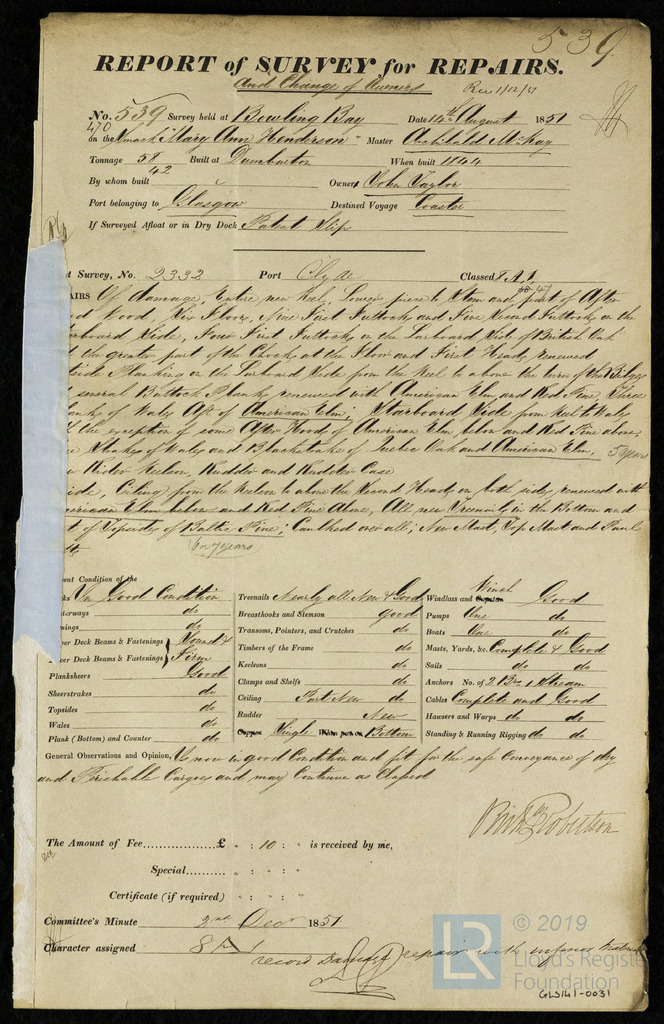 539
REPORT of SURVEY for REPAIRS.
and Change of Owners Rec 1/12/51
No. 539 Survey held at Bowling Bay Date 14th August 1851
470
on the Smack "Mary Ann Henderson" Master Archibald McKay
Tonnage 58 Built at Dumbarton When built 1844
42
By whom built Owner John Taylor
Port belonging to Glasgow Destined Voyage Coaster
If Surveyed Afloat or in Dry Dock Patent Slip
t Survey, No. 2332 Port Clyde Classed 8 A 1
47
AIRS Of damage, Entire new Keel, Lower piece to Stem and part of After
d Wood, Six Floors, Nine First Futtocks and Five Second Futtocks on the
rboard Side, Four First Futtocks on the Larboard Side of British Oak
the greater part of the Chocks at the Floor and First Heads renewed
tside Planking on the Larboard Side from the Keel to above the turn of the Bilges
several Buttock Planks renewed with American Elm and Red Pine, Three
anks of Wales Aft of American Elm; Starboard Side from Keel to Wales
the exception of some After Hoods of American Elm below and Red Pine above,
Strakes of Wales and Blackstrake of Quebec Oak and American Elm, 5 years
Rider Keelson, Rudder and Rudder Case
ide, Ceiling from the Keelson to above the Second Heads on both sides renewed with
erican Elm below and Red Pine Above, All new Treenails in the Bottom and
t of Topsides of Baltic Pine; Caulked over all; New Mast, Top Mast and
6 or 7 years
ent Condition of the
ks In Good Condition
terways do
mings do
per Deck Beams & Fastenings } Sound &
wer Deck Beams & Fastenings } Firm
Planksheers Good
Sheerstrakes do
Topsides do
Wales do
Plank (Bottom) and Counter do
Treenails Nearly all New & Good
Breasthooks and Stemson good
Transoms, Pointers, and Crutches do
Timbers of the Frame do
Keelsons do
Clamps and Shelfs do
Ceiling Part New do
Rudder New
Copper Single Bottom
Winch
Windlass and Capstan Good
Pumps One do
Boats One do
Masts, Yards, &c. Complete & Good
Sails do do
Anchors No. of 2 Brs 1 Stream
Cables Complete and Good
Hawsers and Warps do do
Standing & Running Rigging do do
General Observations and Opinion, Is now in good Condition and fit for the safe Conveyance of dry
and Perishable Cargoes and may Continue as Classed
Robertson
The Amount of Fee............... £ " : 10 : " is received by me,
Special...... " : " : "
Certificate (if required) " : " : "
Committee's Minute 2nd Decr 1851
Character assigned 8 A 1
record damage repair with inferior material
LR
© 2019
Lloyd's Register
Foundation
GLS141-0031